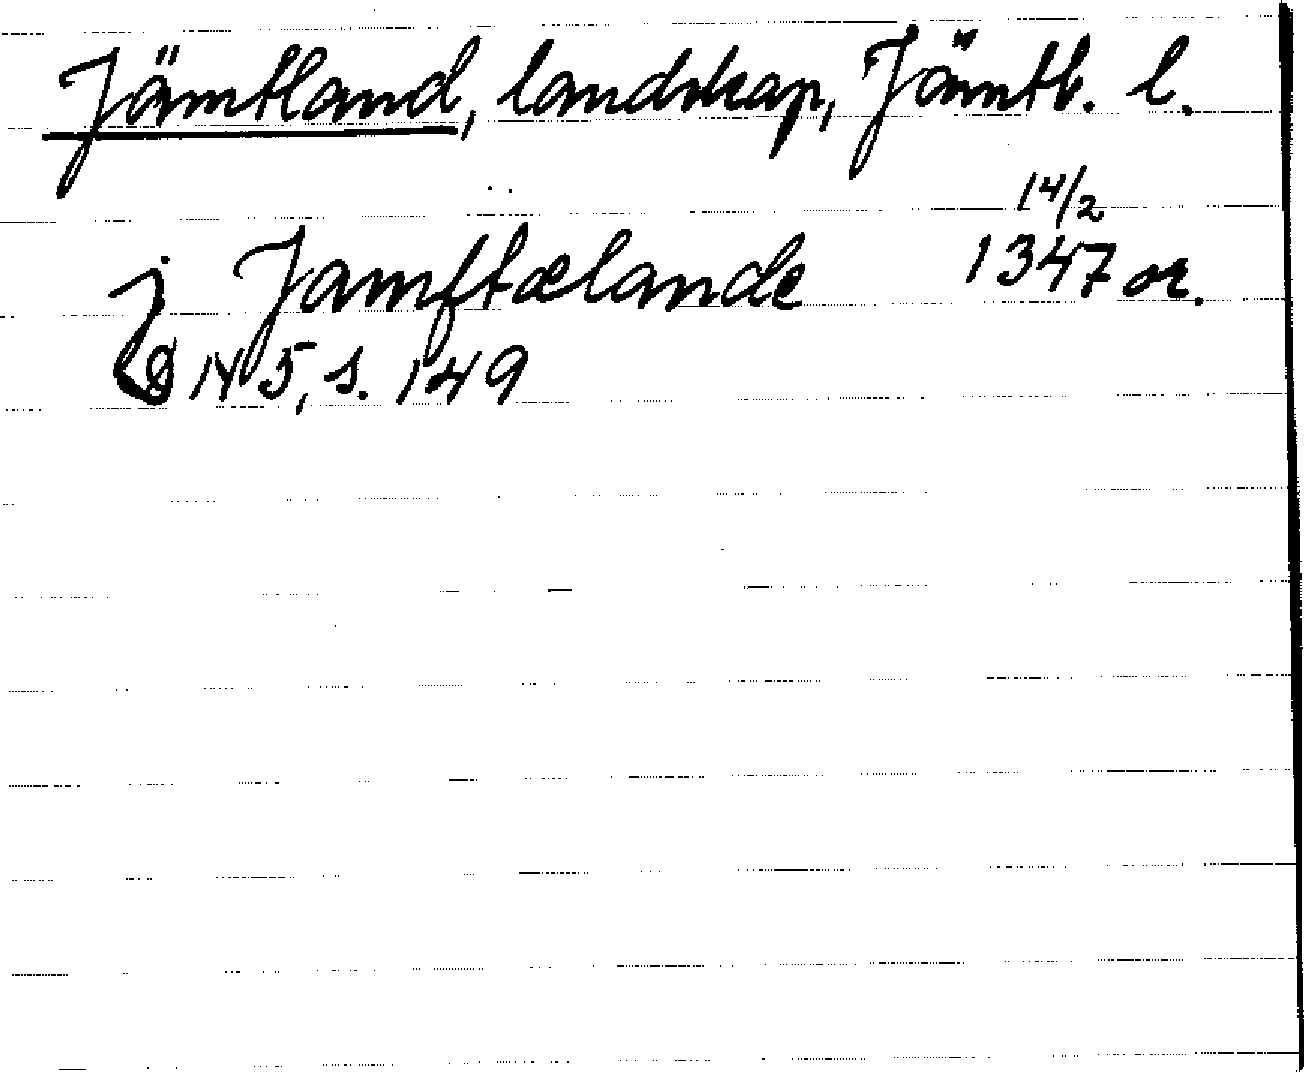 Jämtland, landskap, Jämtl. l.
14/2
j Jamftælande 1347 or.
DN 5, s. 149